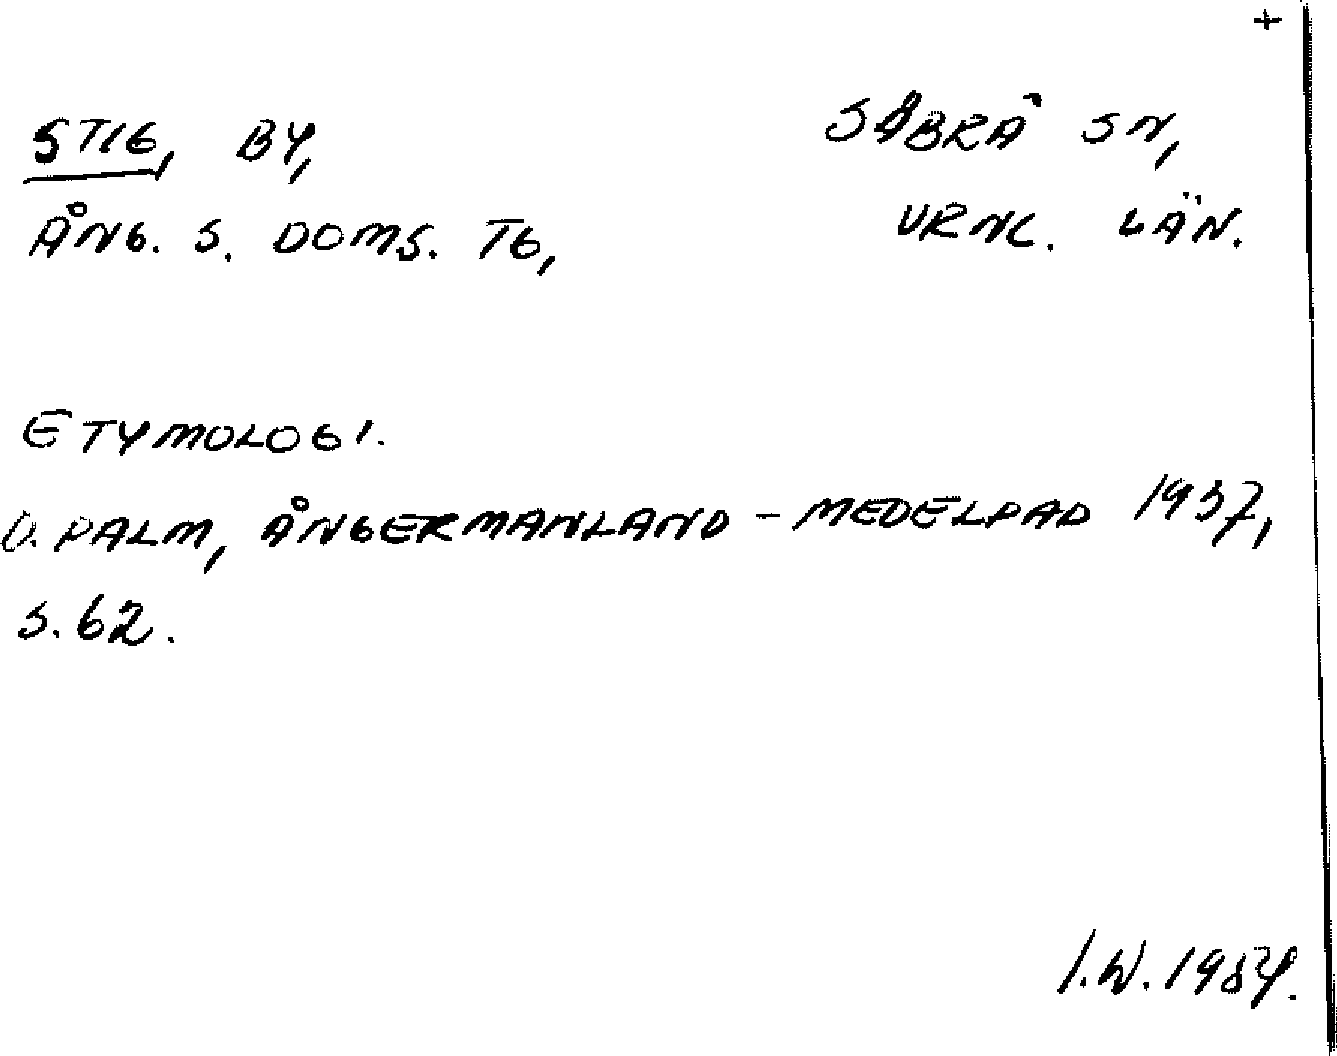 +
STIG, BY, SÅBRÅ SN,
ÅNG. S. DOMS. TG, VRNL. LÄN.
ETYMOLOGI.
D. PALM, ÅNGERMANLAND - MEDELPAD 1937,
S. 62.
I.W. 1984.